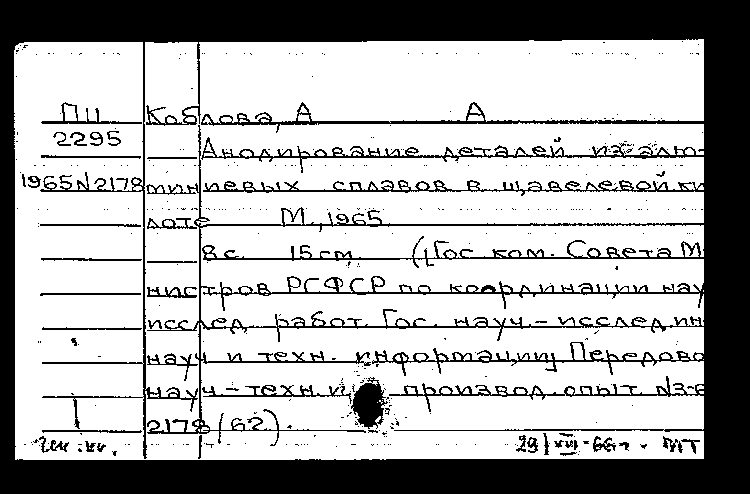 ПП Коблова, А А
2295
Анодирование деталей из алю-
1965 N 2178 миниевых сплавов в щавелевой ки
лоте М., 1965
8 с. 15 см. (Гос ком. Совета М
нистров РСФСР по координации нау
исслед. работ. Гос. науч.-исслед. ин
науч и техн. информации. Передово
науч.-техн. и производ. опыт. N3-6
2178 (62).
29 XII-66 г.